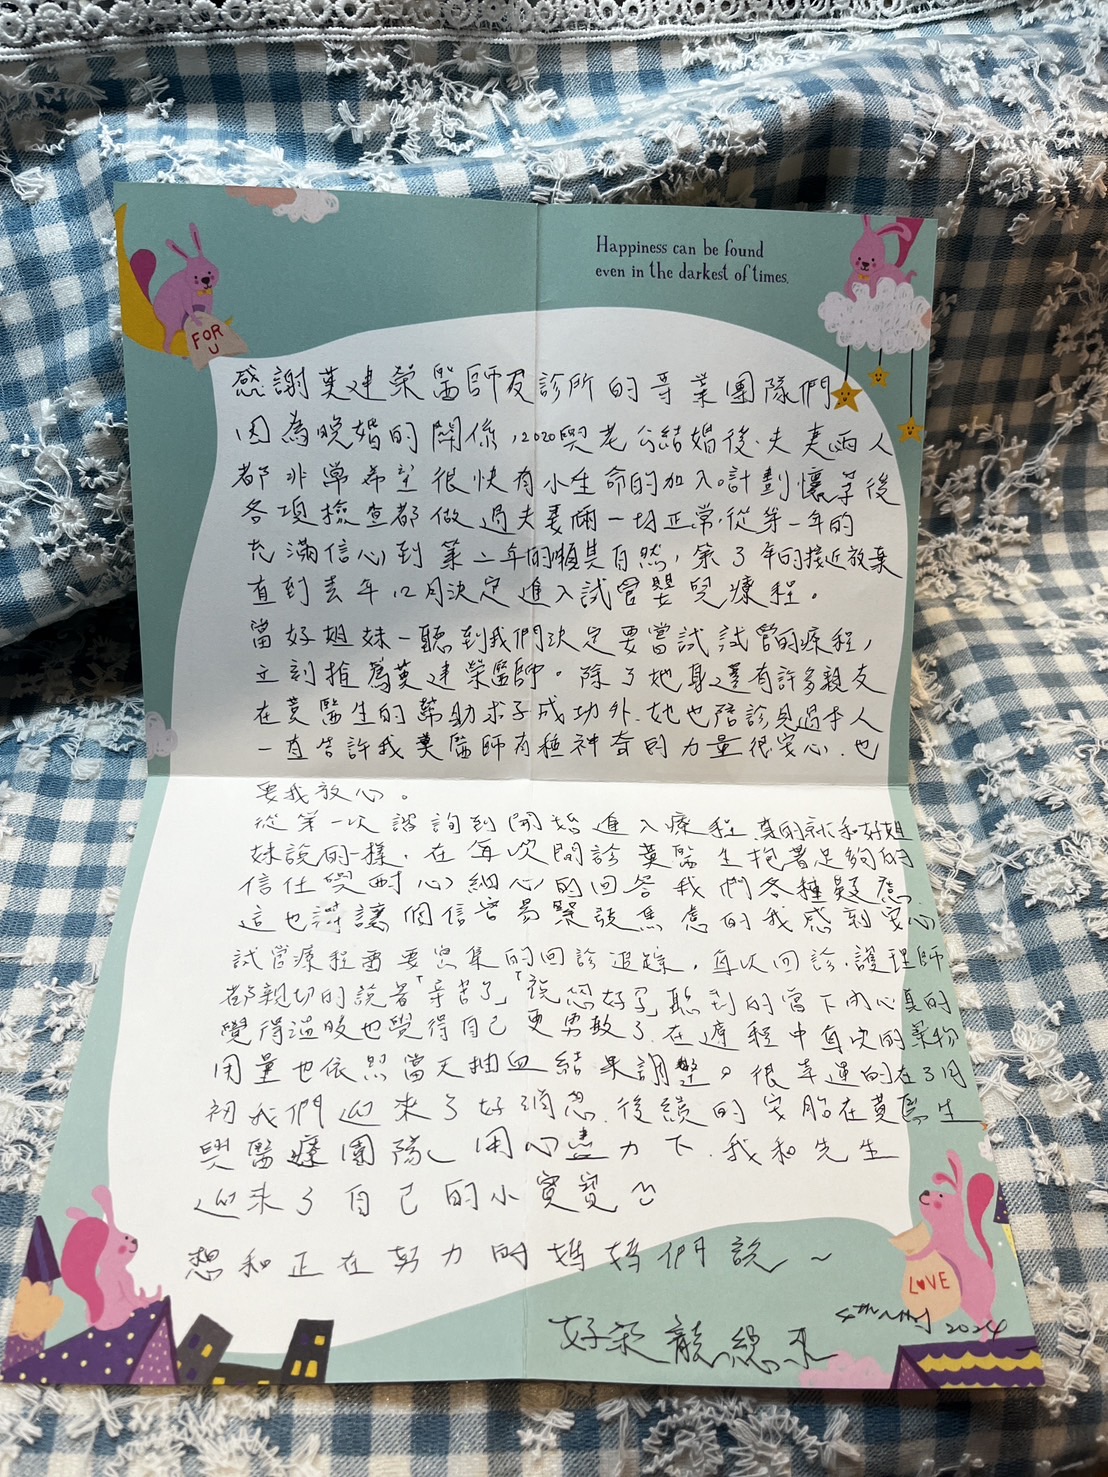 Happiness can be found
even in the darkest of times.
FOR
U
感謝黃建榮醫師及診所的專業團隊們
因為晚婚的關係，2020與老公結婚後，夫妻兩人
都非常希望很快有小生命的加入。計劃懷孕後
各項檢查都做過夫妻倆一切正常，從第一年的
充滿信心到第二年的順其自然，第3年的接近放棄
直到去年12月決定進入試管嬰兒療程。
當好姐妹一聽到我們決定要嘗試試管的療程，
立刻推薦黃建榮醫師。除了她身邊有許多親友
在黃醫生的幫助求子成功外，她也陪診見過本人
一直告訴我黃醫師有種神奇的力量很安心，也
要我放心。
從第一次諮詢到開始進入療程，真的就和好姐
妹說的一樣，在每次問診黃醫生抱著足夠的
信任與耐心細心的回答我們各種疑慮
這也讓個信容易緊張焦慮的我感到安心
試管療程需要密集的回診追蹤，每次回診，護理師
都親切的說著「辛苦了」「祝您好孕」聽到的當下內心真的
覺得溫暖也覺得自己更勇敢了，在療程中每次的藥物
用量也依照當天抽血結果調整。很幸運的在3月
初我們迎來了好消息，後續的安胎在黃醫生
與醫療團隊用心盡力下，我和先生
迎來了自己的小寶寶
想和正在努力的媽媽們說～
好
LOVE
4th MAY 2024